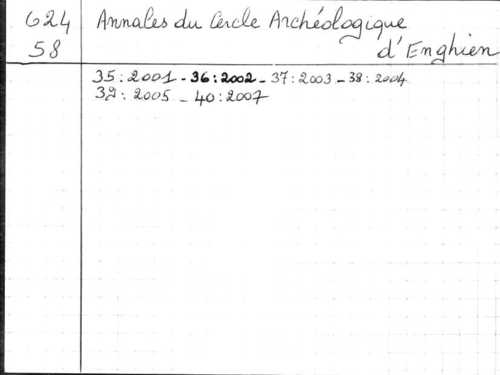 624 Annales du Cercle Archéologique
58 d'Enghien
35:2001 - 36:2002 - 37:2003 - 38:2004
39:2005 - 40:2007